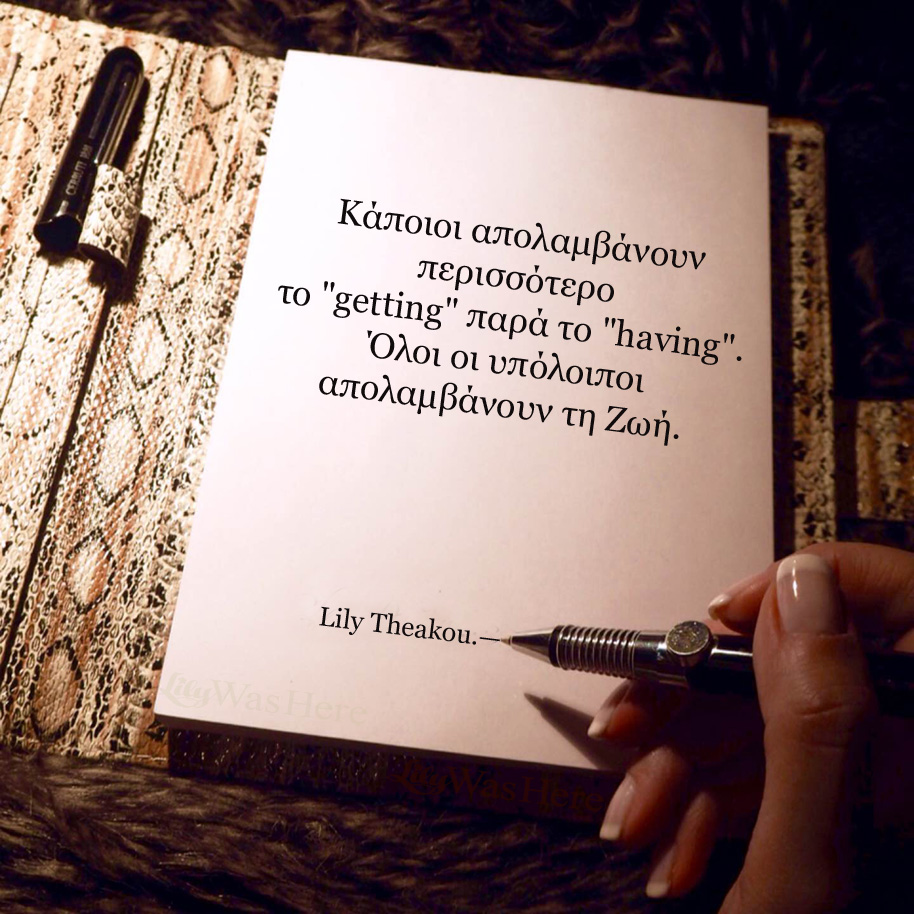 Κάποιοι απολαμβάνουν
περισσότερο
το "getting" παρά το "having".
Όλοι οι υπόλοιποι
απολαμβάνουν τη Ζωή.
Lily Theakou.—
LilyWasHere
LilyWasHere